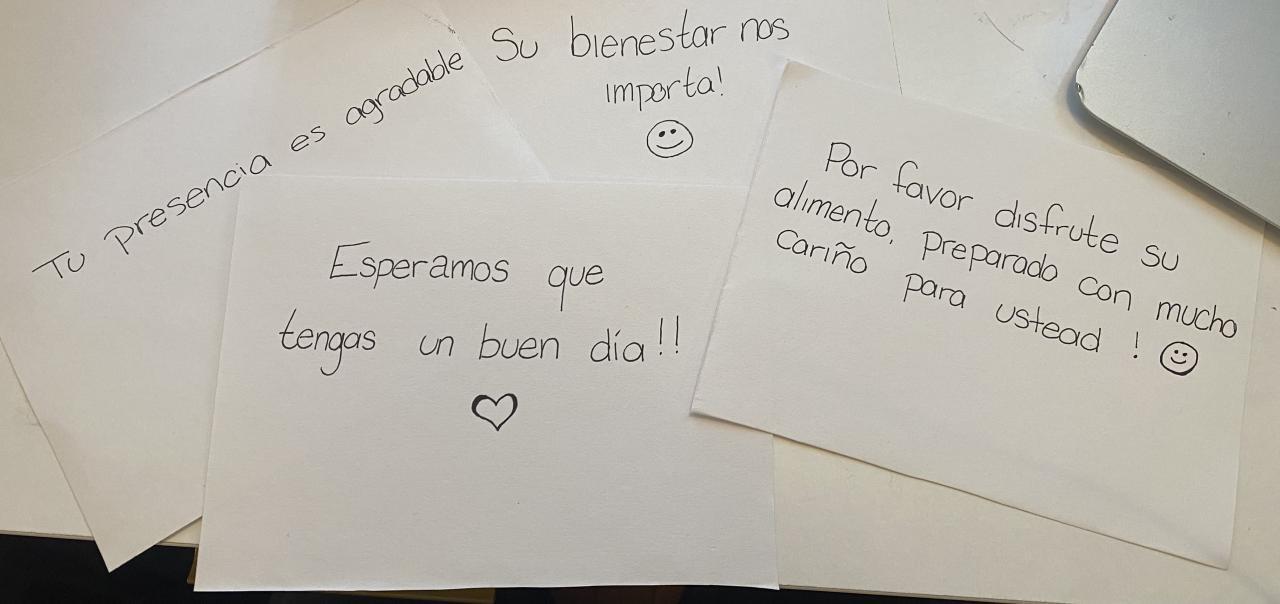 Tu presencia es agradable
Su bienestar nos
importa!
Esperamos que
tengas un buen día!!
Por favor disfrute su
alimento, preparado con mucho
cariño para ustead !